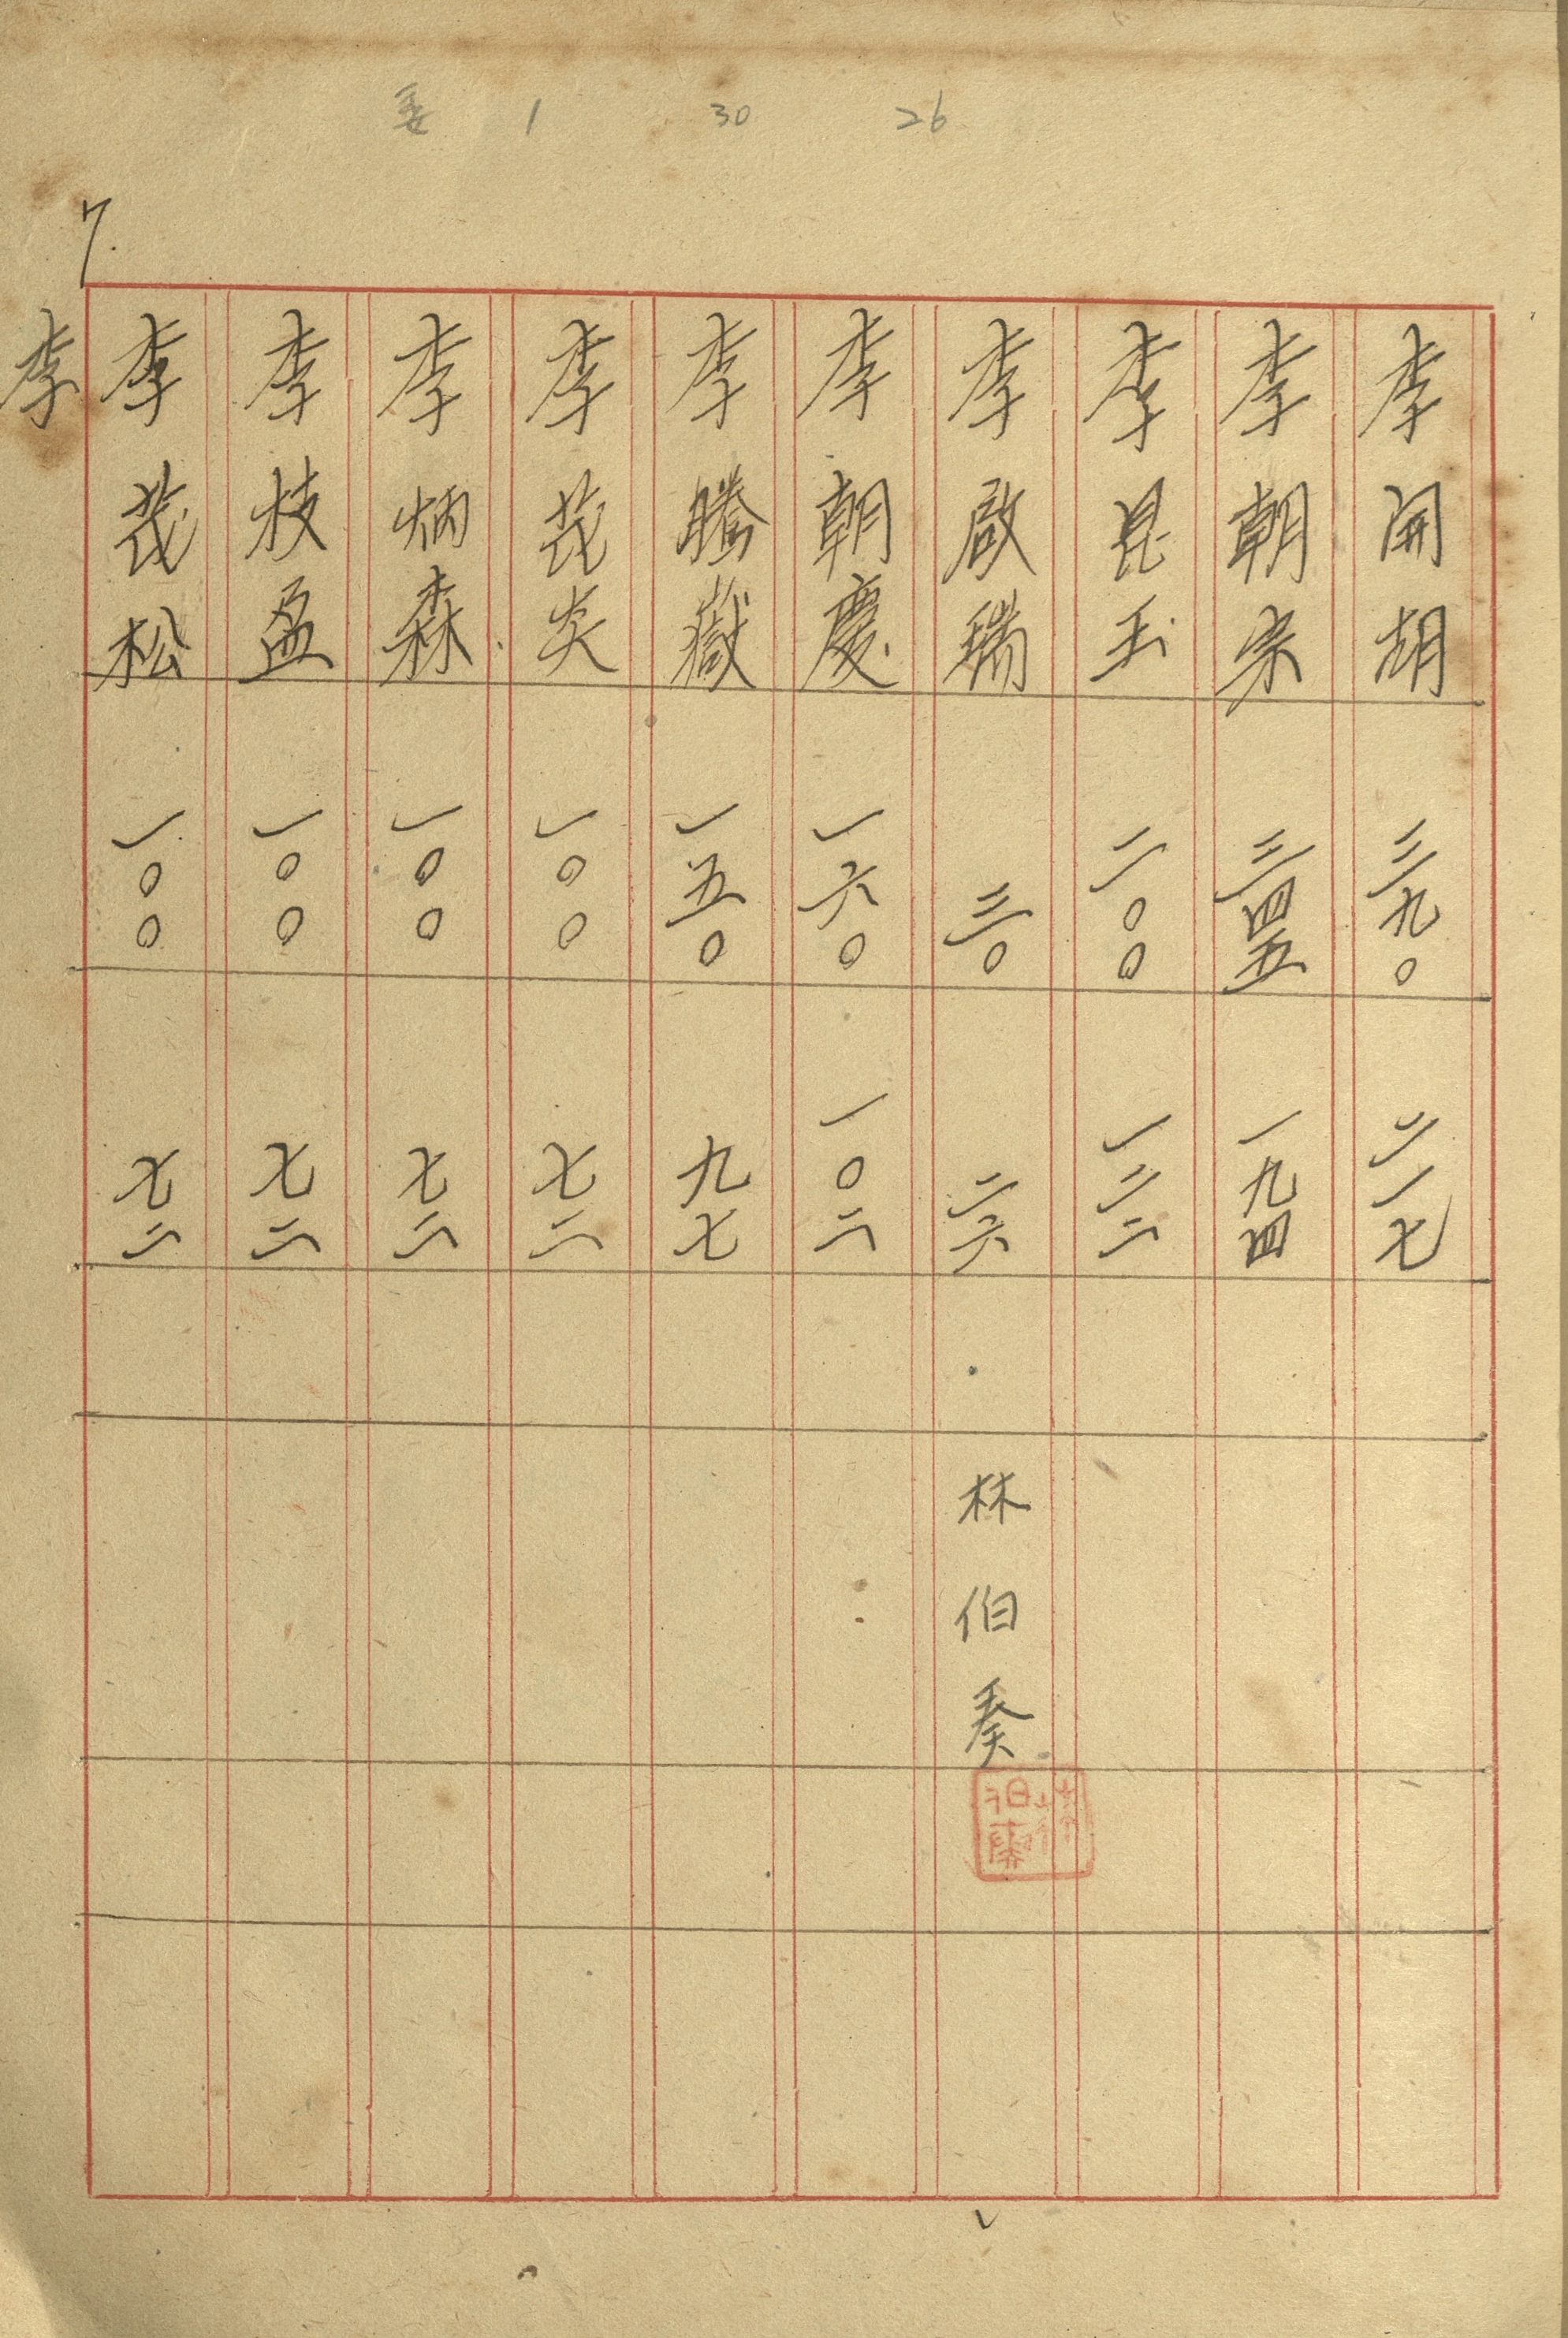 委 1 30 26
7.
李開胡 三九〇 二一七
李朝宗 三四五 一九四
李昆玉 二〇〇 一二二
李啟瑞 三〇 二六 林伯奏
李朝慶 一六〇 一〇二
李騰嶽 一五〇 九七
李茂炎 一〇〇 七二
李炳森 一〇〇 七二
李枝盈 一〇〇 七二
李茂松 一〇〇 七二
李